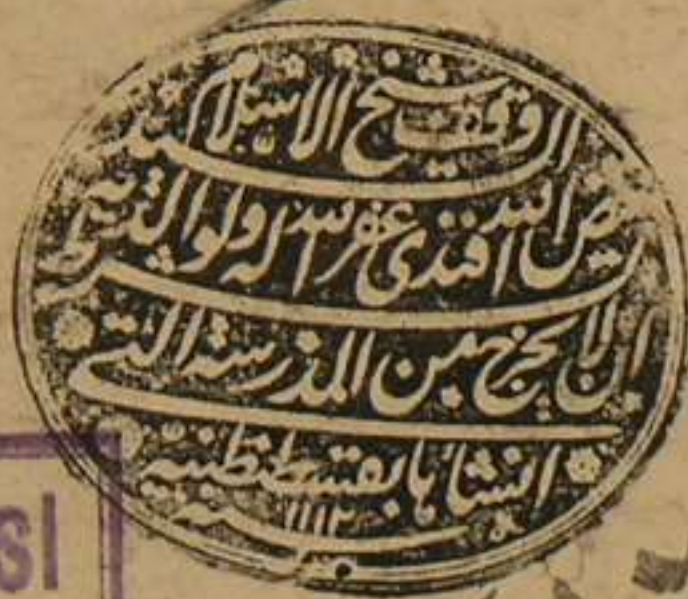 وقف شيخ الاسلام السيد
فيض الله افندى غفر الله له ولوالديه
بشرط ان لا يخرج من المدرسة التى
انشأها بقسطنطنية
سنه ١١١٢
SI